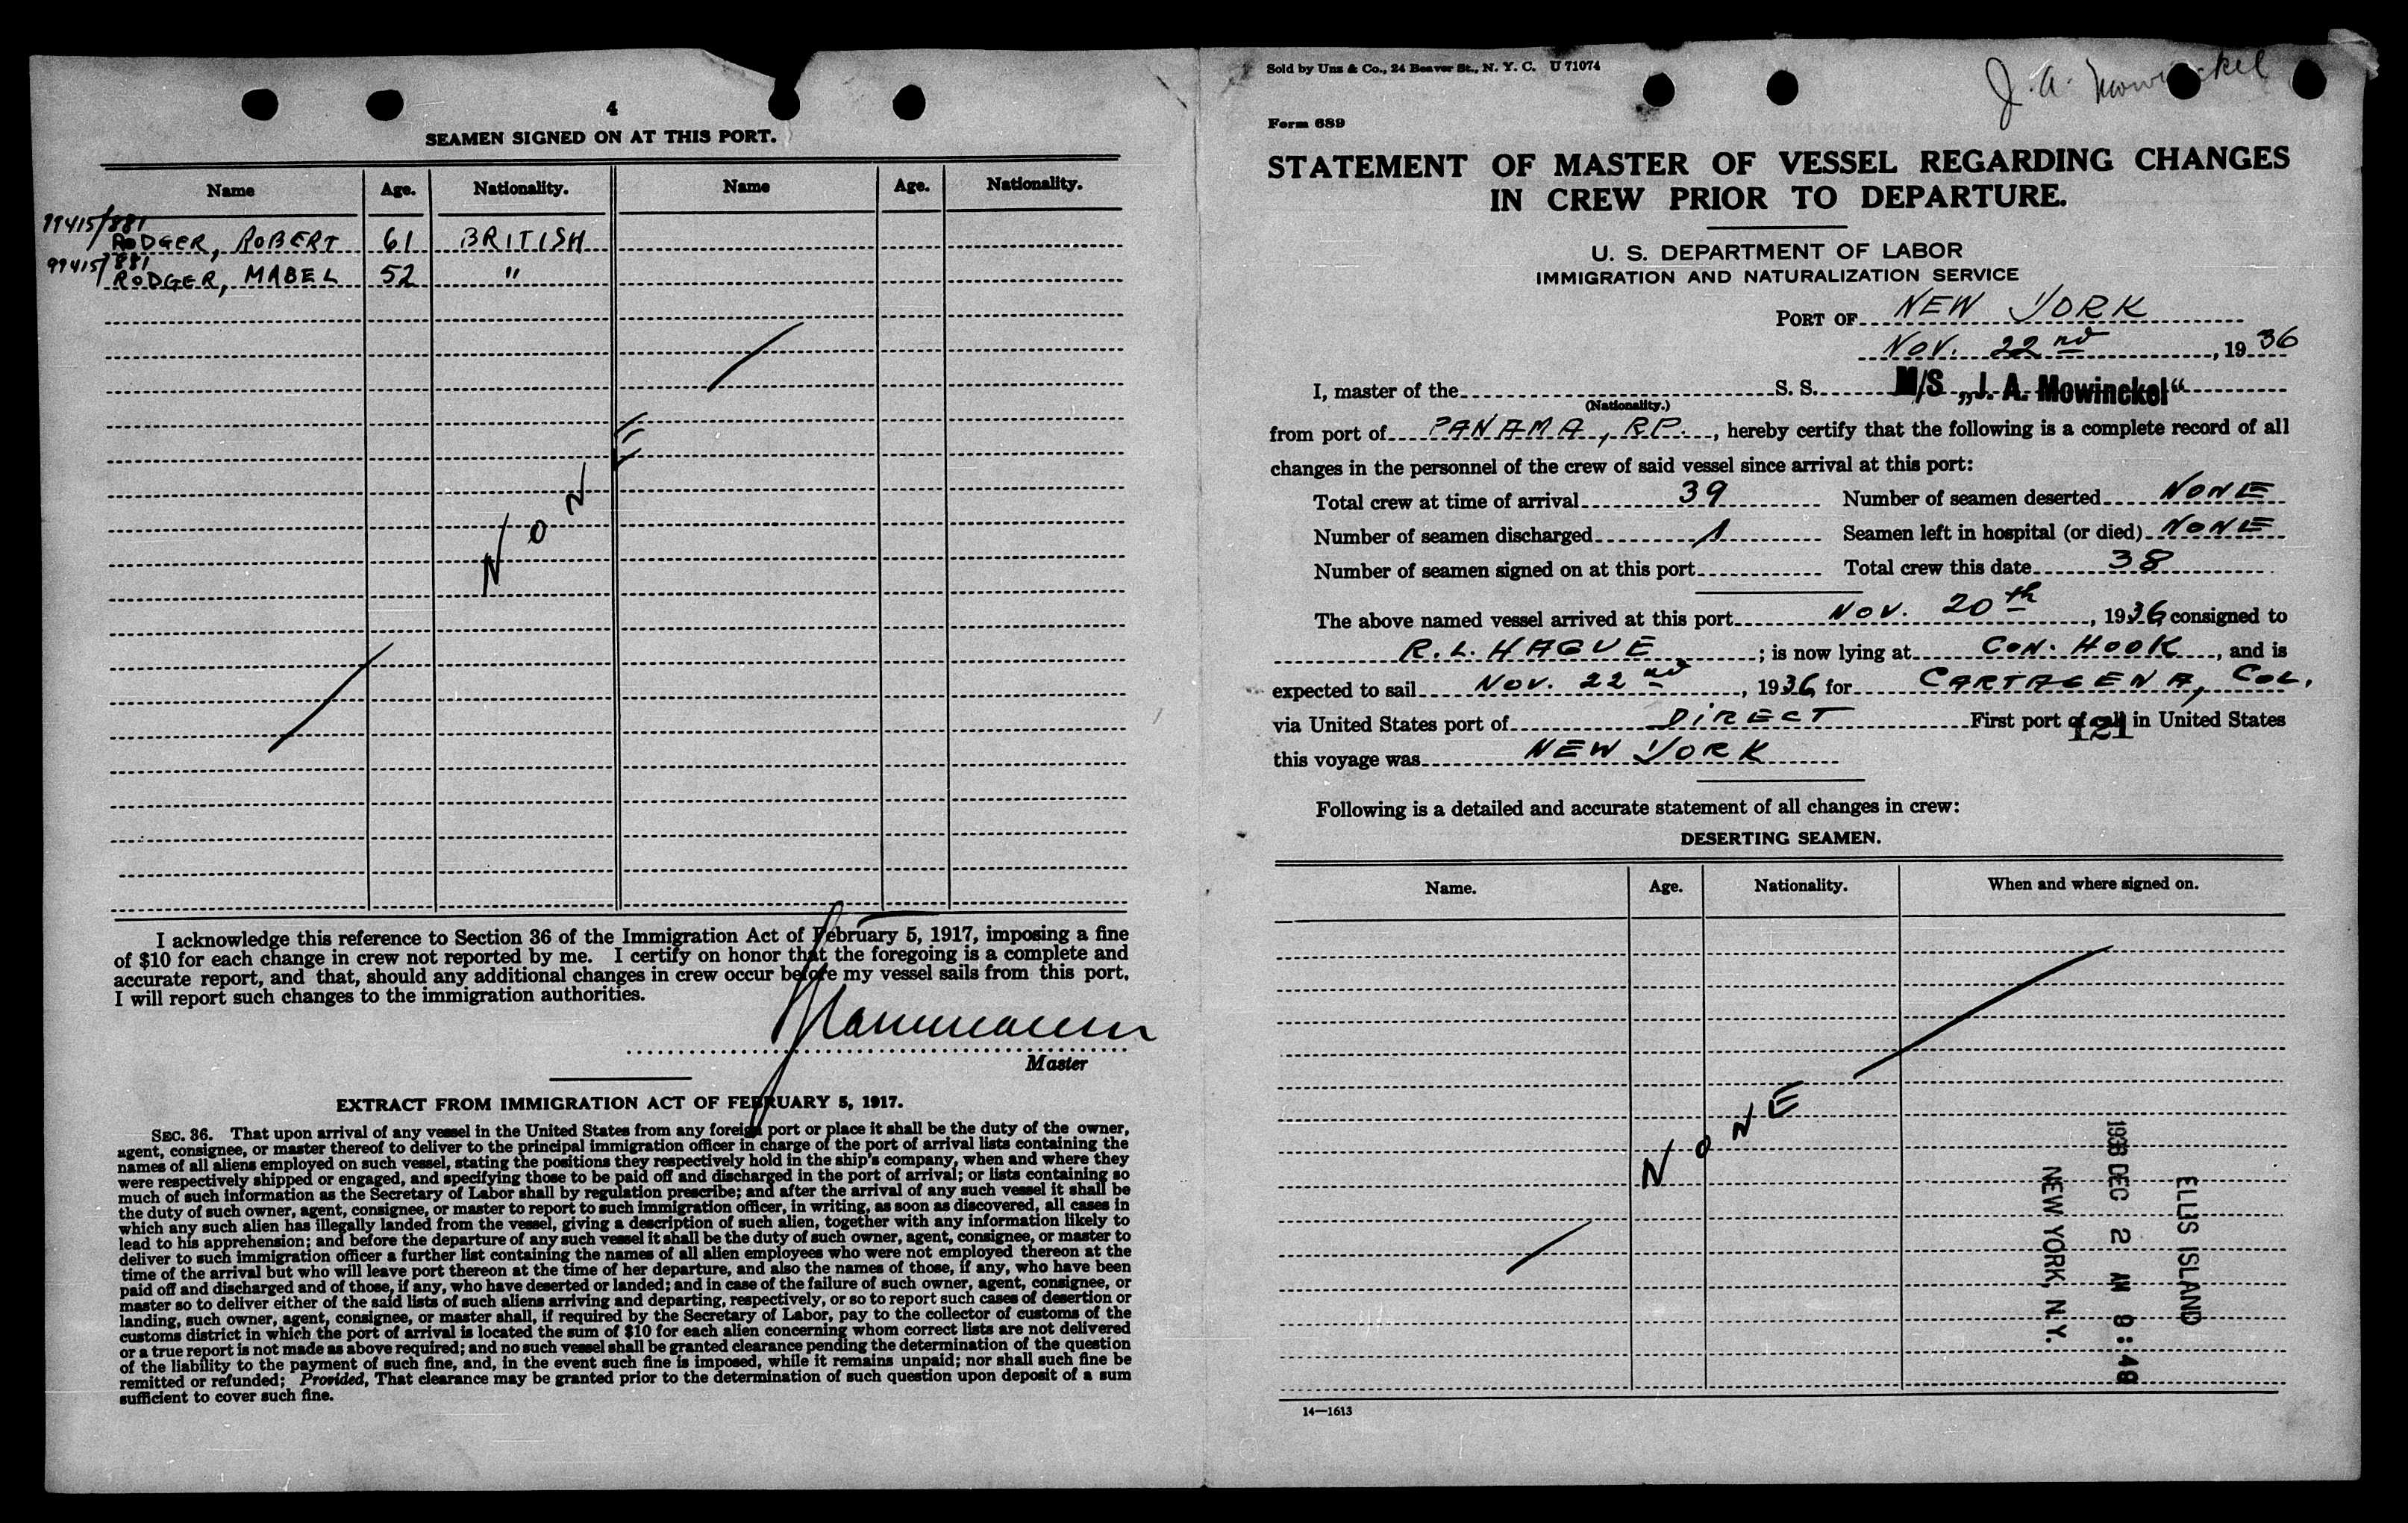 4
SEAMEN SIGNED ON AT THIS PORT.
Name Age. Nationality. Name Age. Nationality.
99415/881
RODGER, ROBERT 61 BRITISH
99415/881
RODGER, MABEL 52 "
NONE
I acknowledge this reference to Section 36 of the Immigration Act of February 5, 1917, imposing a fine
of $10 for each change in crew not reported by me. I certify on honor that the foregoing is a complete and
accurate report, and that, should any additional changes in crew occur before my vessel sails from this port,
I will report such changes to the immigration authorities.
Master
EXTRACT FROM IMMIGRATION ACT OF FEBRUARY 5, 1917.
SEC. 36. That upon arrival of any vessel in the United States from any foreign port or place it shall be the duty of the owner,
agent, consignee, or master thereof to deliver to the principal immigration officer in charge of the port of arrival lists containing the
names of all aliens employed on such vessel, stating the positions they respectively hold in the ship's company, when and where they
were respectively shipped or engaged, and specifying those to be paid off and discharged in the port of arrival; or lists containing so
much of such information as the Secretary of Labor shall by regulation prescribe; and after the arrival of any such vessel it shall be
the duty of such owner, agent, consignee, or master to report to such immigration officer, in writing, as soon as discovered, all cases in
which any such alien has illegally landed from the vessel, giving a description of such alien, together with any information likely to
lead to his apprehension; and before the departure of any such vessel it shall be the duty of such owner, agent, consignee, or master to
deliver to such immigration officer a further list containing the names of all alien employees who were not employed thereon at the
time of the arrival but who will leave port thereon at the time of her departure, and also the names of those, if any, who have been
paid off and discharged and of those, if any, who have deserted or landed; and in case of the failure of such owner, agent, consignee, or
master so to deliver either of the said lists of such aliens arriving and departing, respectively, or so to report such cases of desertion or
landing, such owner, agent, consignee, or master shall, if required by the Secretary of Labor, pay to the collector of customs of the
customs district in which the port of arrival is located the sum of $10 for each alien concerning whom correct lists are not delivered
or a true report is not made as above required; and no such vessel shall be granted clearance pending the determination of the question
of the liability to the payment of such fine, and, in the event such fine is imposed, while it remains unpaid; nor shall such fine be
remitted or refunded; Provided, That clearance may be granted prior to the determination of such question upon deposit of a sum
sufficient to cover such fine.
Sold by Unz & Co., 24 Beaver St., N. Y. C. U 71074
J. A. Mowinckel
Form 689
STATEMENT OF MASTER OF VESSEL REGARDING CHANGES
IN CREW PRIOR TO DEPARTURE.
U. S. DEPARTMENT OF LABOR
IMMIGRATION AND NATURALIZATION SERVICE
PORT OF NEW YORK
NOV. 22nd, 1936
I, master of the S. S. M/S „J. A. Mowinckel“
(Nationality.)
from port of PANAMA, RP., hereby certify that the following is a complete record of all
changes in the personnel of the crew of said vessel since arrival at this port:
Total crew at time of arrival 39 Number of seamen deserted NONE
Number of seamen discharged 1 Seamen left in hospital (or died) NONE
Number of seamen signed on at this port Total crew this date 38
The above named vessel arrived at this port NOV. 20th, 1936 consigned to
R. L. HAGUE; is now lying at CON. HOOK, and is
expected to sail NOV. 22nd, 1936 for CARTAGENA, COL.
via United States port of DIRECT First port of call in United States
121
this voyage was NEW YORK
Following is a detailed and accurate statement of all changes in crew:
DESERTING SEAMEN.
Name. Age. Nationality. When and where signed on.
NONE
ELLIS ISLAND
1936 DEC 2 AM 9:48
NEW YORK, N.Y.
14—1613